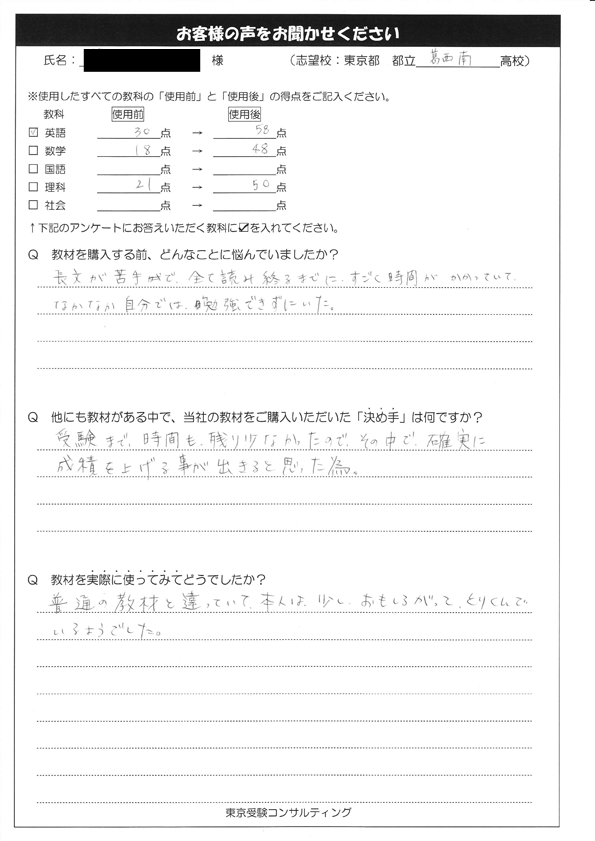 お客様の声をお聞かせください
氏名： 様 （志望校：東京都 都立 葛西南 高校）
※使用したすべての教科の「使用前」と「使用後」の得点をご記入ください。
教科 使用前 使用後
☑ 英語 30 点 → 58 点
□ 数学 18 点 → 48 点
□ 国語 点 → 点
□ 理科 21 点 → 50 点
□ 社会 点 → 点
↑下記のアンケートにお答えいただく教科に☑を入れてください。
Q 教材を購入する前、どんなことに悩んでいましたか？
長文が苦手で、全て読み終るまでに、すごく時間がかかっていて、
なかなか自分では、勉強できずにいた。
Q 他にも教材がある中で、当社の教材をご購入いただいた「決め手」は何ですか？
受験まで、時間も、残り少なかったので、その中で、確実に
成積を上げる事が出きると思った為。
Q 教材を実際に使ってみてどうでしたか？
普通の教材と違っていて、本人は、少し、おもしろがって、とりくんで
いるようでした。
東京受験コンサルティング